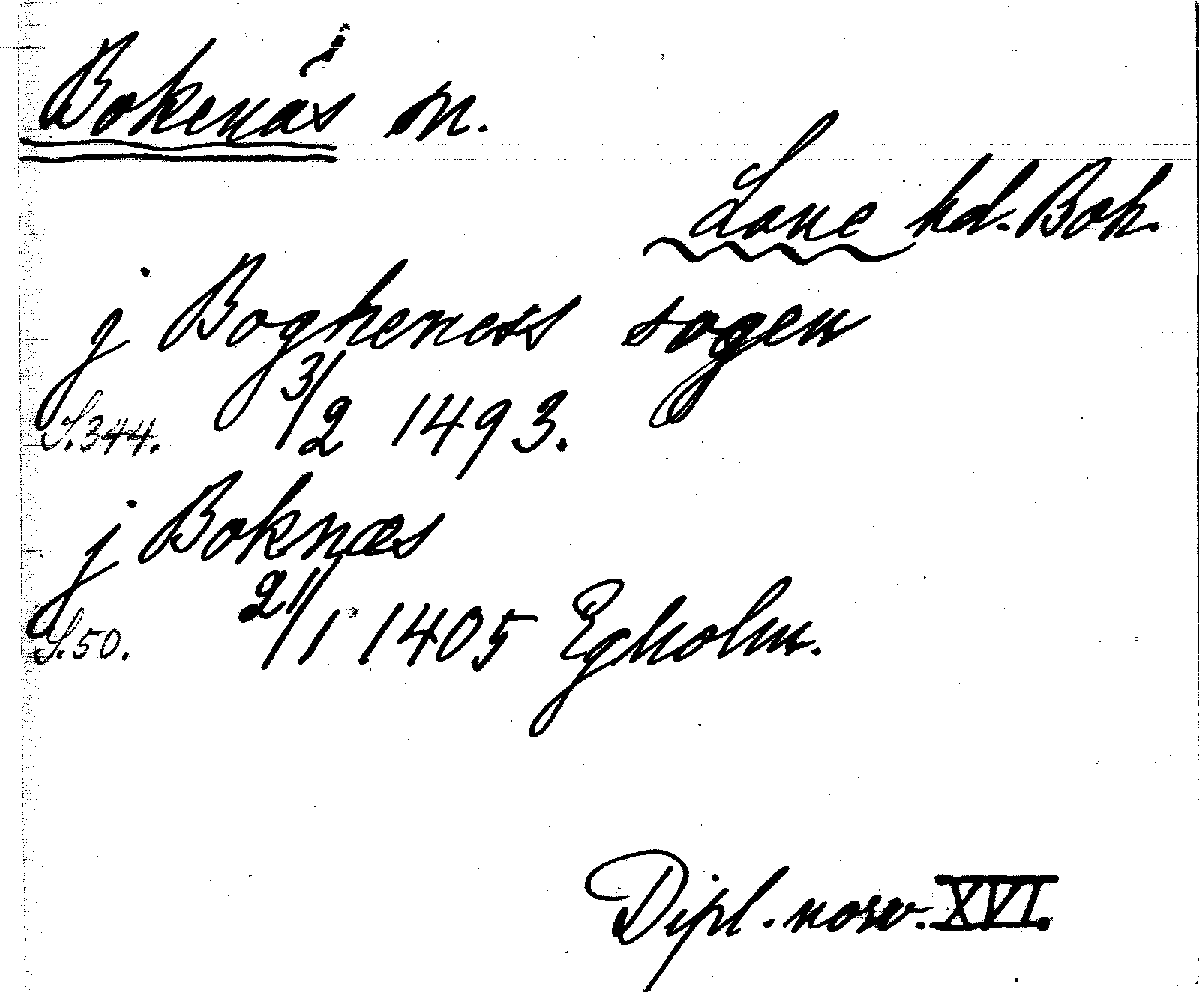 Bokenäs sn.
Lane hd. Boh.
j Bogheness sogen
S.344. 3/2 1493.
j Boknæs
S.50. 21/1 1405 Egholm.
Dipl. norv. XVI.